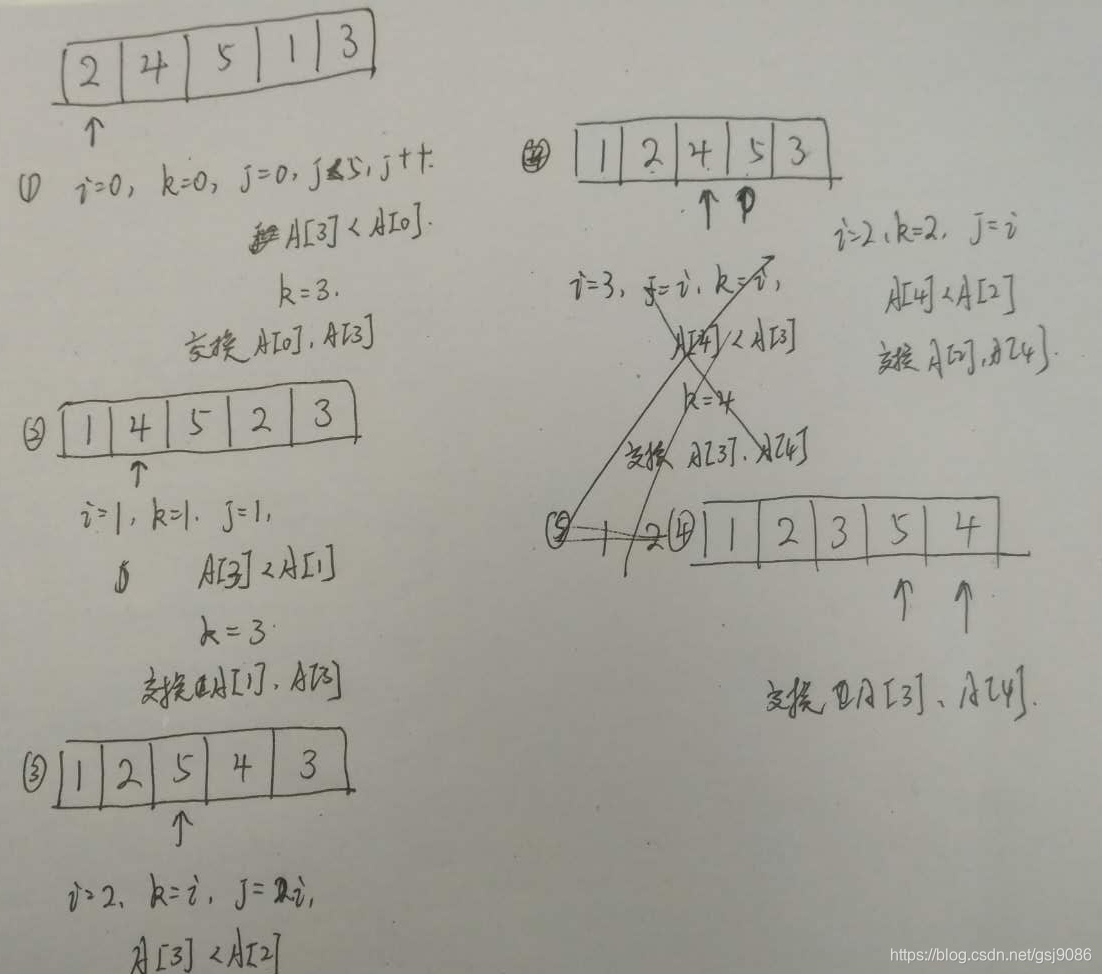 2 4 5 1 3
① i=0, k=0, j=0, j<5, j++.
A[3]<A[0].
k=3.
交换 A[0], A[3]
② 1 4 5 2 3
i=1, k=1. j=1,
A[3]<A[1]
k=3
交换 A[1], A[3]
③ 1 2 5 4 3
i=2, k=i, j=i,
A[3]<A[2]
1 2 4 5 3
i=2, k=2, j=i
A[4]<A[2]
交换 A[2], A[4].
i=3, j=i, k=i,
A[4]<A[3]
k=4
交换 A[3], A[4]
⑤ 1 2
④ 1 2 3 5 4
交换 A[3]、A[4].
https://blog.csdn.net/gsj9086